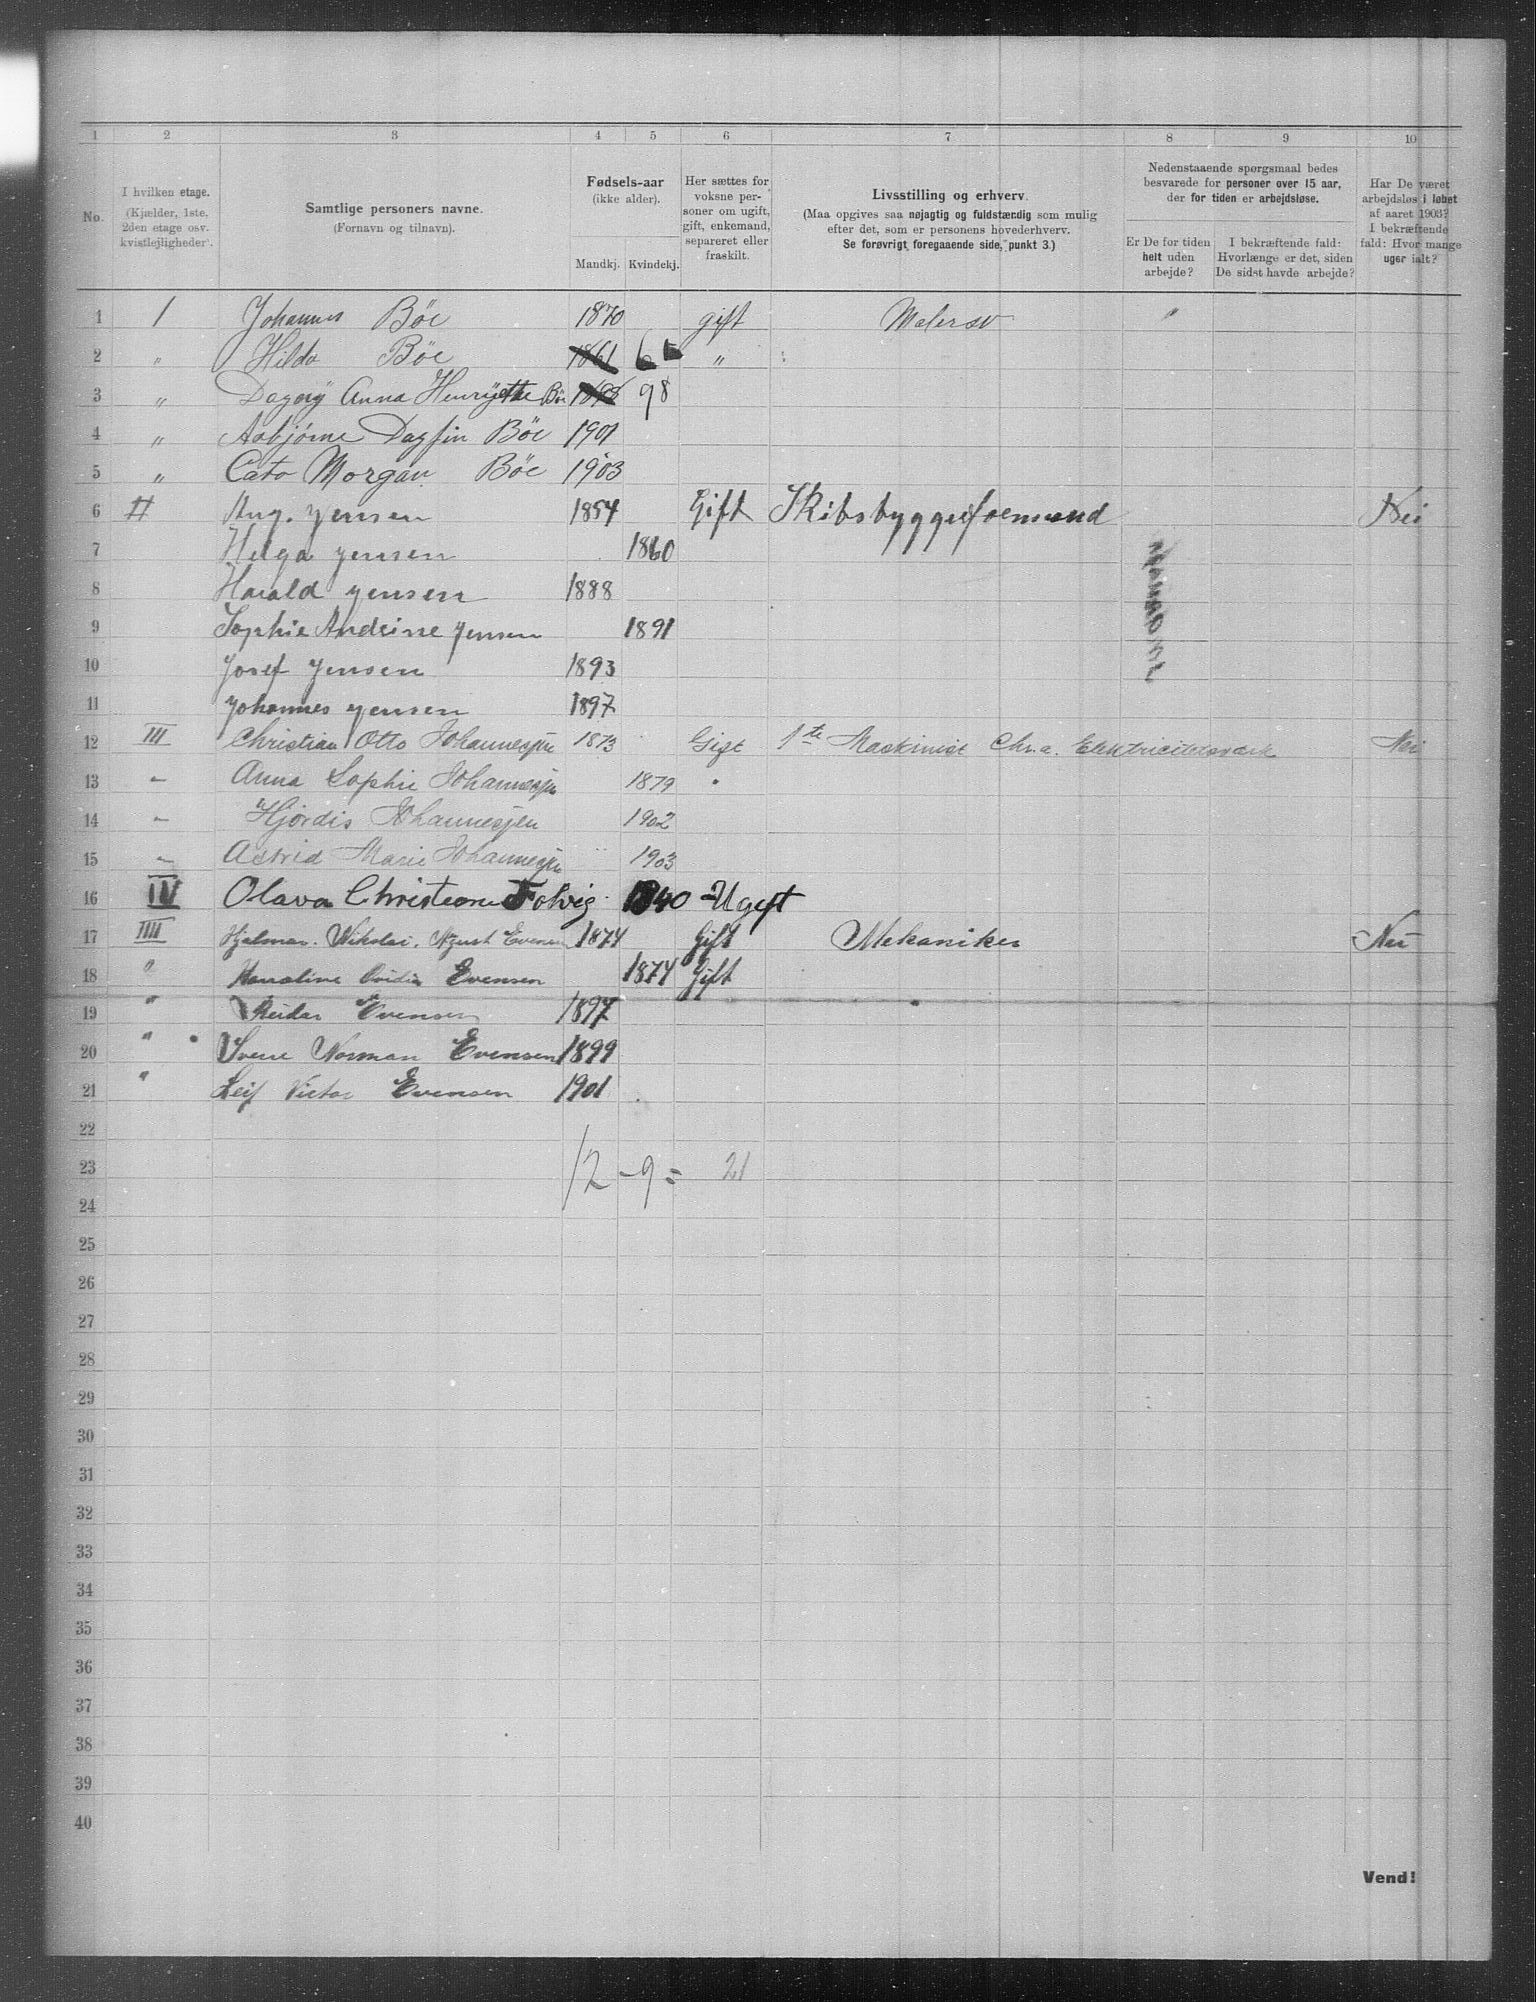 1 2 3 4 5 6 7 8 9 10
No.
I hvilken etage.
(Kjælder, 1ste,
2den etage osv.
kvistlejligheder).
Samtlige personers navne.
(Fornavn og tilnavn).
Fødsels-aar
(ikke alder).
Mandkj. Kvindekj.
Her sættes for
voksne per-
soner om ugift,
gift, enkemand,
separeret eller
fraskilt.
Livsstilling og erhverv.
(Maa opgives saa nøjagtig og fuldstændig som mulig
efter det, som er personens hovederhverv.
Se forøvrigt foregaaende side, punkt 3.)
Nedenstaaende spørgsmaal bedes
besvarede for personer over 15 aar,
der for tiden er arbejdsløse.
Er De for tiden
helt uden
arbejde?
I bekræftende fald:
Hvorlænge er det, siden
De sidst havde arbejde?
Har De været
arbejdsløs i løbet
af aaret 1903?
I bekræftende
fald: Hvor mange
uger ialt?
1 1 Johannes Böe 1870 gift Malersv "
2 " Hilda Böe 1861 65 "
3 " Dagny Anna Henryette Bö 98
4 " Asbjørne Dagfin Böe 1901
5 " Cato Morgan Böe 1903
6 II Aug. Jensen 1854 Gift Skibsbyggerformand Nei
7 Helga Jensen 1860
8 Harald Jensen 1888
9 Sophie Andrine Jensen 1891
10 Josef Jensen 1893
11 Johannes Jensen 1897
12 III Christian Otto Johannesen 1873 Gift 1ste Maskinist Chr.a. Elektricitetsværk Nei
13 " Anna Sophie Johannesen 1879 "
14 " Hjørdis Johannesen 1902
15 " Astrid Marie Johannesen 1903
16 IV Olava Christiane 1840 Ugift
17 IIII Hjalmar. Nikolai. Agust Evensen 1874 Gift Mekaniker Nei
18 " Evensen 1874 Gift
19 " Reidar Evensen 1897
20 " Sverre Norman Evensen 1899
21 " Leif Victor Evensen 1901
22
23 12 - 9 = 21
24
25
26
27
28
29
30
31
32
33
34
35
36
37
38
39
40
Vend!